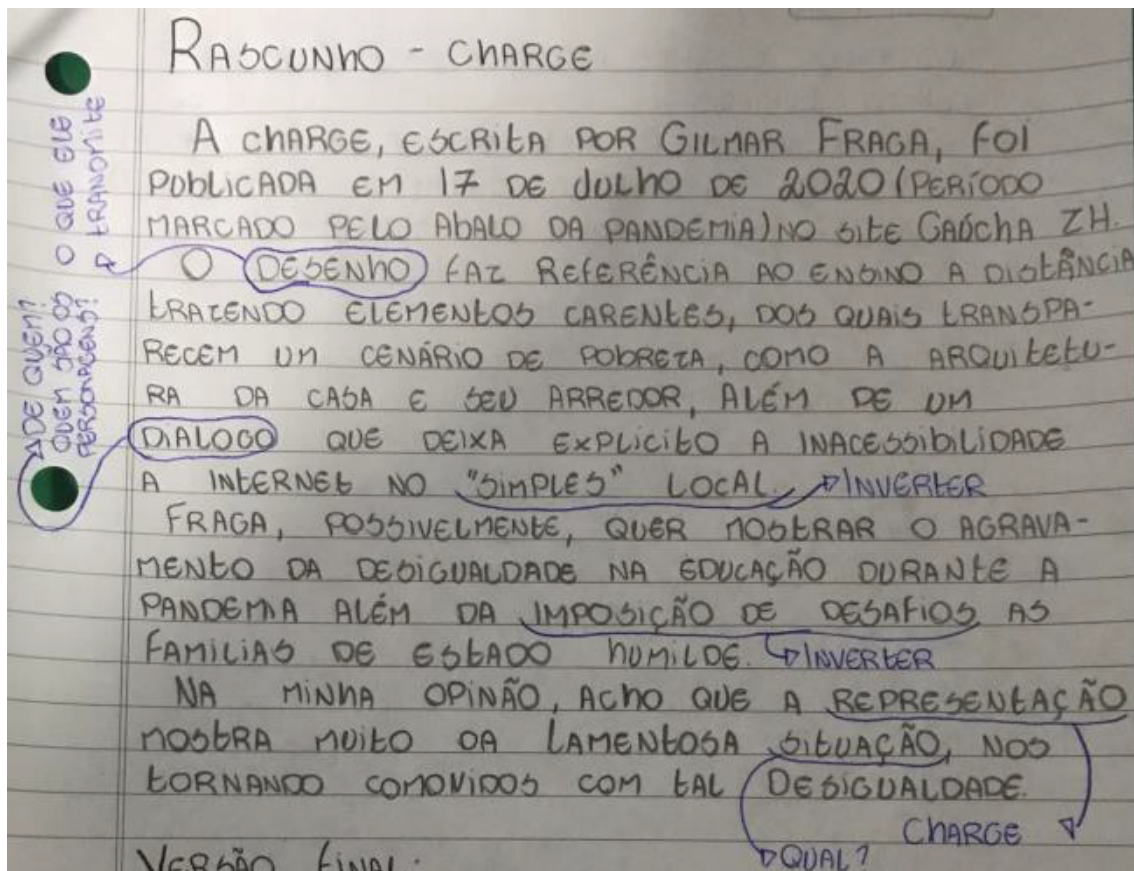 RASCUNHO - CHARGE
A CHARGE, ESCRITA POR GILMAR FRAGA, FOI
PUBLICADA EM 17 DE JULHO DE 2020 (PERÍODO
MARCADO PELO ABALO DA PANDEMIA) NO SITE GAÚCHA ZH.
O DESENHO FAZ REFERÊNCIA AO ENSINO A DISTÂNCIA
TRAZENDO ELEMENTOS CARENTES, DOS QUAIS TRANSPA-
RECEM UM CENÁRIO DE POBREZA, COMO A ARQUITETU-
RA DA CASA E SEU ARREDOR, ALÉM DE UM
DIALOGO QUE DEIXA EXPLICITO A INACESSIBILIDADE
A INTERNET NO "SIMPLES" LOCAL. INVERTER
FRAGA, POSSIVELMENTE, QUER MOSTRAR O AGRAVA-
MENTO DA DESIGUALDADE NA EDUCAÇÃO DURANTE A
PANDEMIA ALÉM DA IMPOSIÇÃO DE DESAFIOS AS
FAMILIAS DE ESTADO HUMILDE. INVERTER
NA MINHA OPINÃO, ACHO QUE A REPRESENTAÇÃO
MOSTRA MUITO DA LAMENTOSA SITUAÇÃO, NOS
TORNANDO COMOVIDOS COM TAL DESIGUALDADE.
CHARGE
QUAL?
VERSÃO FINAL:
O QUE ELE
TRANSMITE
DE QUEM?
QUEM SÃO OS
PERSONAGENS?